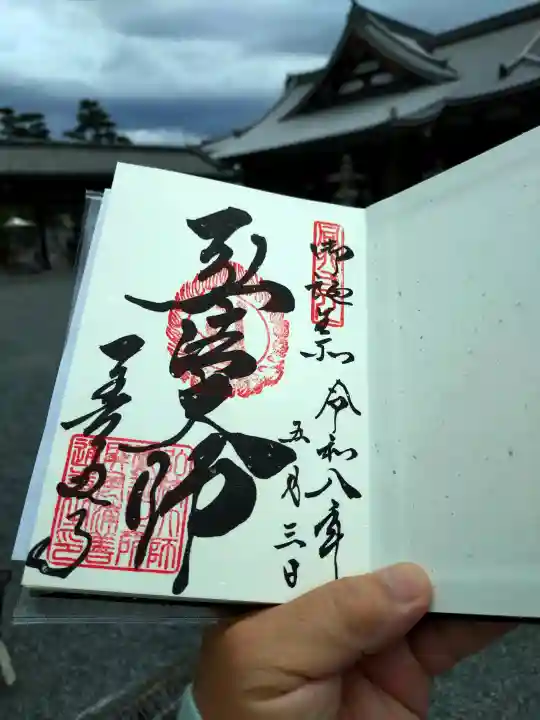 御誕生所 令和八年
五月三日
弘法大師
善通寺